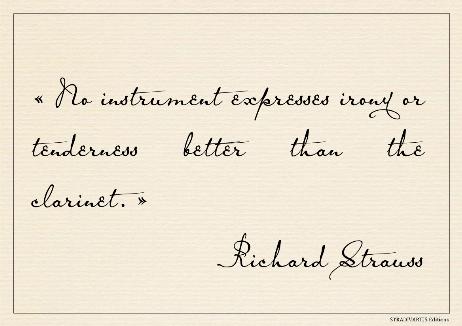 « No instrument expresses irony or
tenderness better than the
clarinet. »
Richard Strauss
STRADIVARIUS Editions